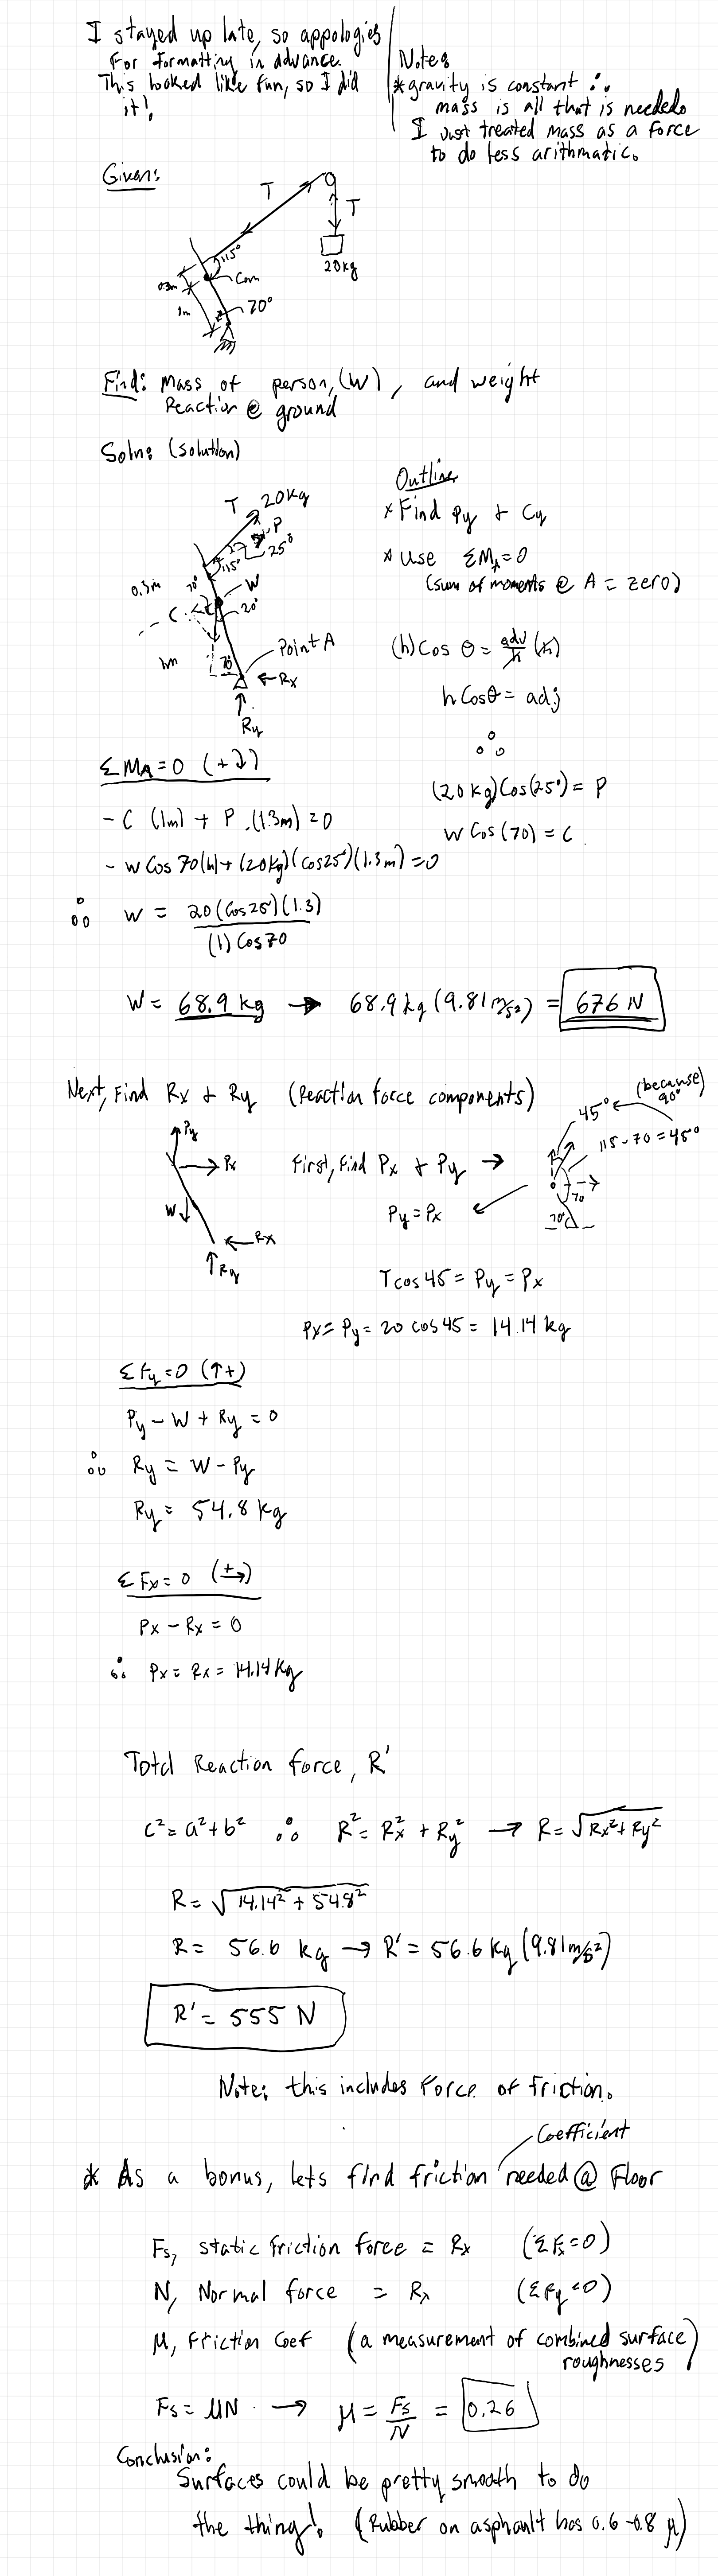 I stayed up late, so appologies
for formatting in advance.
This looked like fun, so I did
it!
Notes
* gravity is constant ∴
mass is all that is needed.
I just treated mass as a force
to do less arithmatic.
Given:
T
T
20kg
115°
Com
0.3m
1m
70°
Find: Mass of person, (W), and weight
Reaction @ ground
Soln: (solution)
Outline
* Find Py + Cy
* Use ΣMA=0
(sum of moments @ A = zero)
T 20kg
P
25°
115°
70°
0.3m
W
C
20°
1m
70
Point A
Rx
Ry
(h) Cos θ = adj/h (h)
h Cosθ = adj
∴
(20 kg) Cos(25°) = P
W Cos (70) = C
ΣMA=0 (+↓)
- C (1m) + P (1.3m) = 0
- W Cos 70(1m) + (20kg)(cos25°)(1.3m) = 0
∴ W = 20(Cos25°)(1.3)
(1) Cos70
W = 68.9 kg → 68.9 kg (9.81 m/s²) = 676 N
Next, Find Rx + Ry (Reaction force components)
Py
Px
W
Rx
Ry
First, find Px + Py →
Py = Px
45°
(because)
90°
115-70 = 45°
70
70°
T cos 45 = Py = Px
Px = Py = 20 cos 45 = 14.14 kg
ΣFy=0 (↑+)
Py - W + Ry = 0
∴ Ry = W - Py
Ry = 54.8 kg
ΣFx=0 (+→)
Px - Rx = 0
∴ Px = Rx = 14.14 kg
Total Reaction force, R'
c² = a²+b² ∴ R² = Rx² + Ry² → R = √Rx²+Ry²
R = √14.14² + 54.8²
R = 56.6 kg → R' = 56.6 kg (9.81 m/s²)
R' = 555 N
Note: this includes Force of friction.
Coefficient
* As a bonus, lets find friction needed @ Floor
Fs, static friction force = Rx (ΣFx=0)
N, Normal force = Ry (ΣFy=0)
μ, friction coef (a measurement of combined surface
roughnesses)
Fs = μN → μ = Fs/N = 0.26
Conclusion:
Surfaces could be pretty smooth to do
the thing! (Rubber on asphanlt has 0.6-0.8 μ)